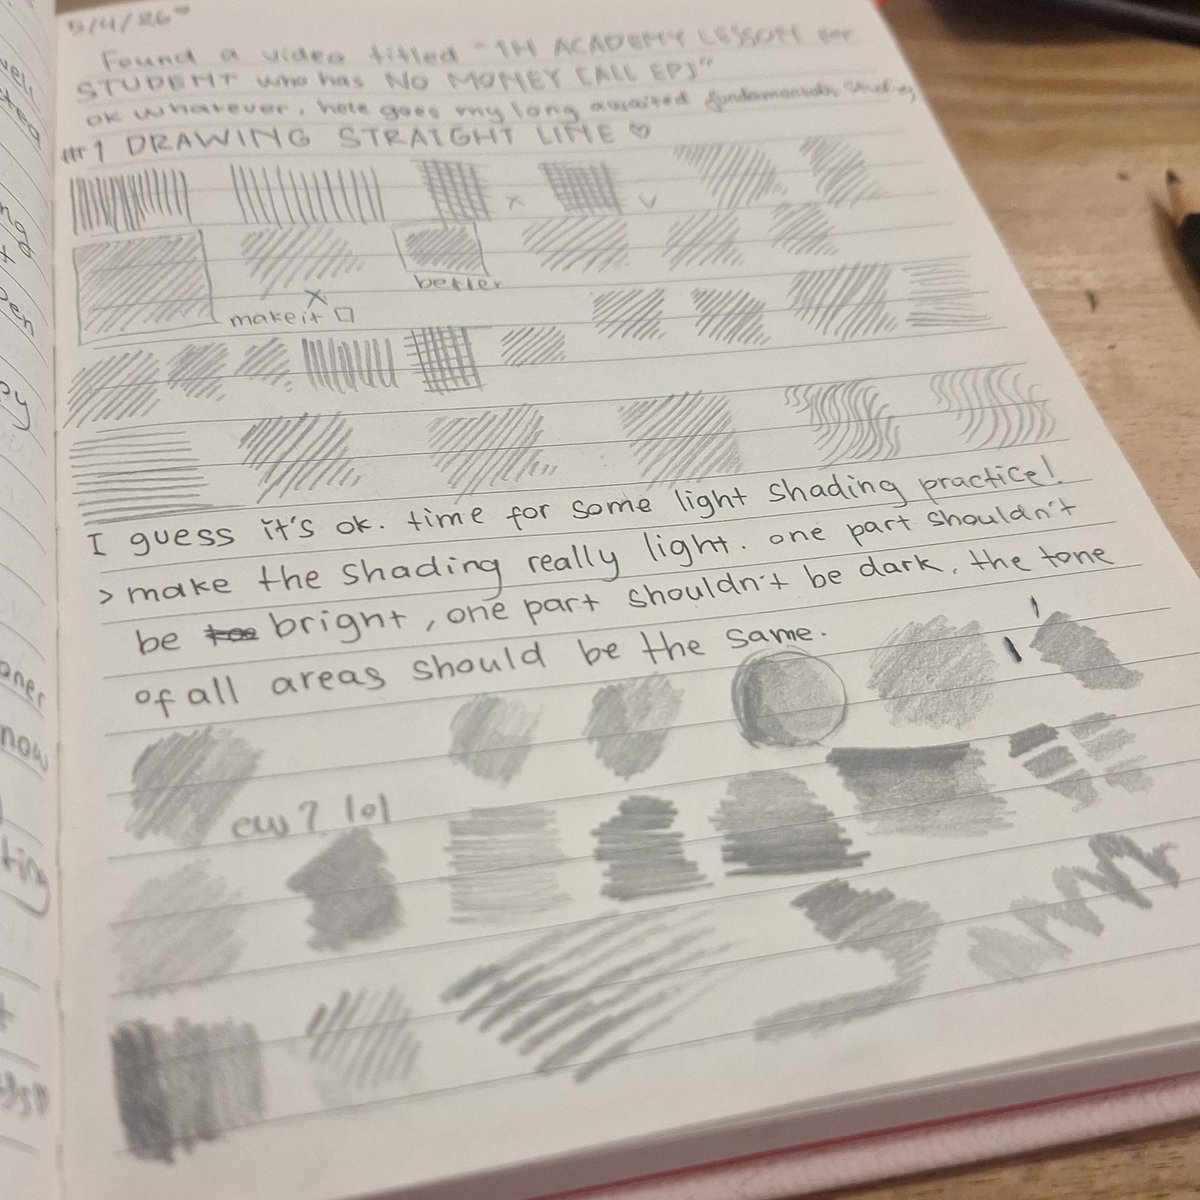 5/4/26
Found a video titled "1H ACADEMY LESSON for
STUDENT who has NO MONEY [ALL EP]"
ok whatever, here goes my long awaited fundamentals studies
#1 DRAWING STRAIGHT LINE ♡
x
v
better
x
make it □
I guess it's ok. time for some light shading practice!
> make the shading really light. one part shouldn't
be too bright, one part shouldn't be dark, the tone
of all areas should be the same.
cw? lol
now